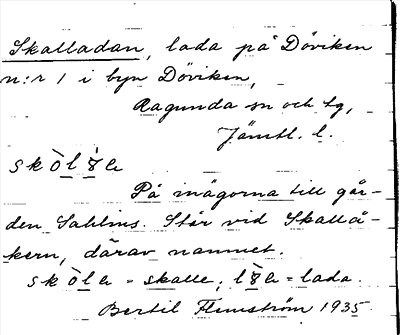 Skalladan, lada på Döviken
n:r 1 i byn Döviken,
Ragunda sn och tg,
Jämtl. l.
På inägorna till går-
den Sahlins. Står vid Skallå-
kern, därav namnet.
= skalle; = lada.
Bertil Flemström 1935